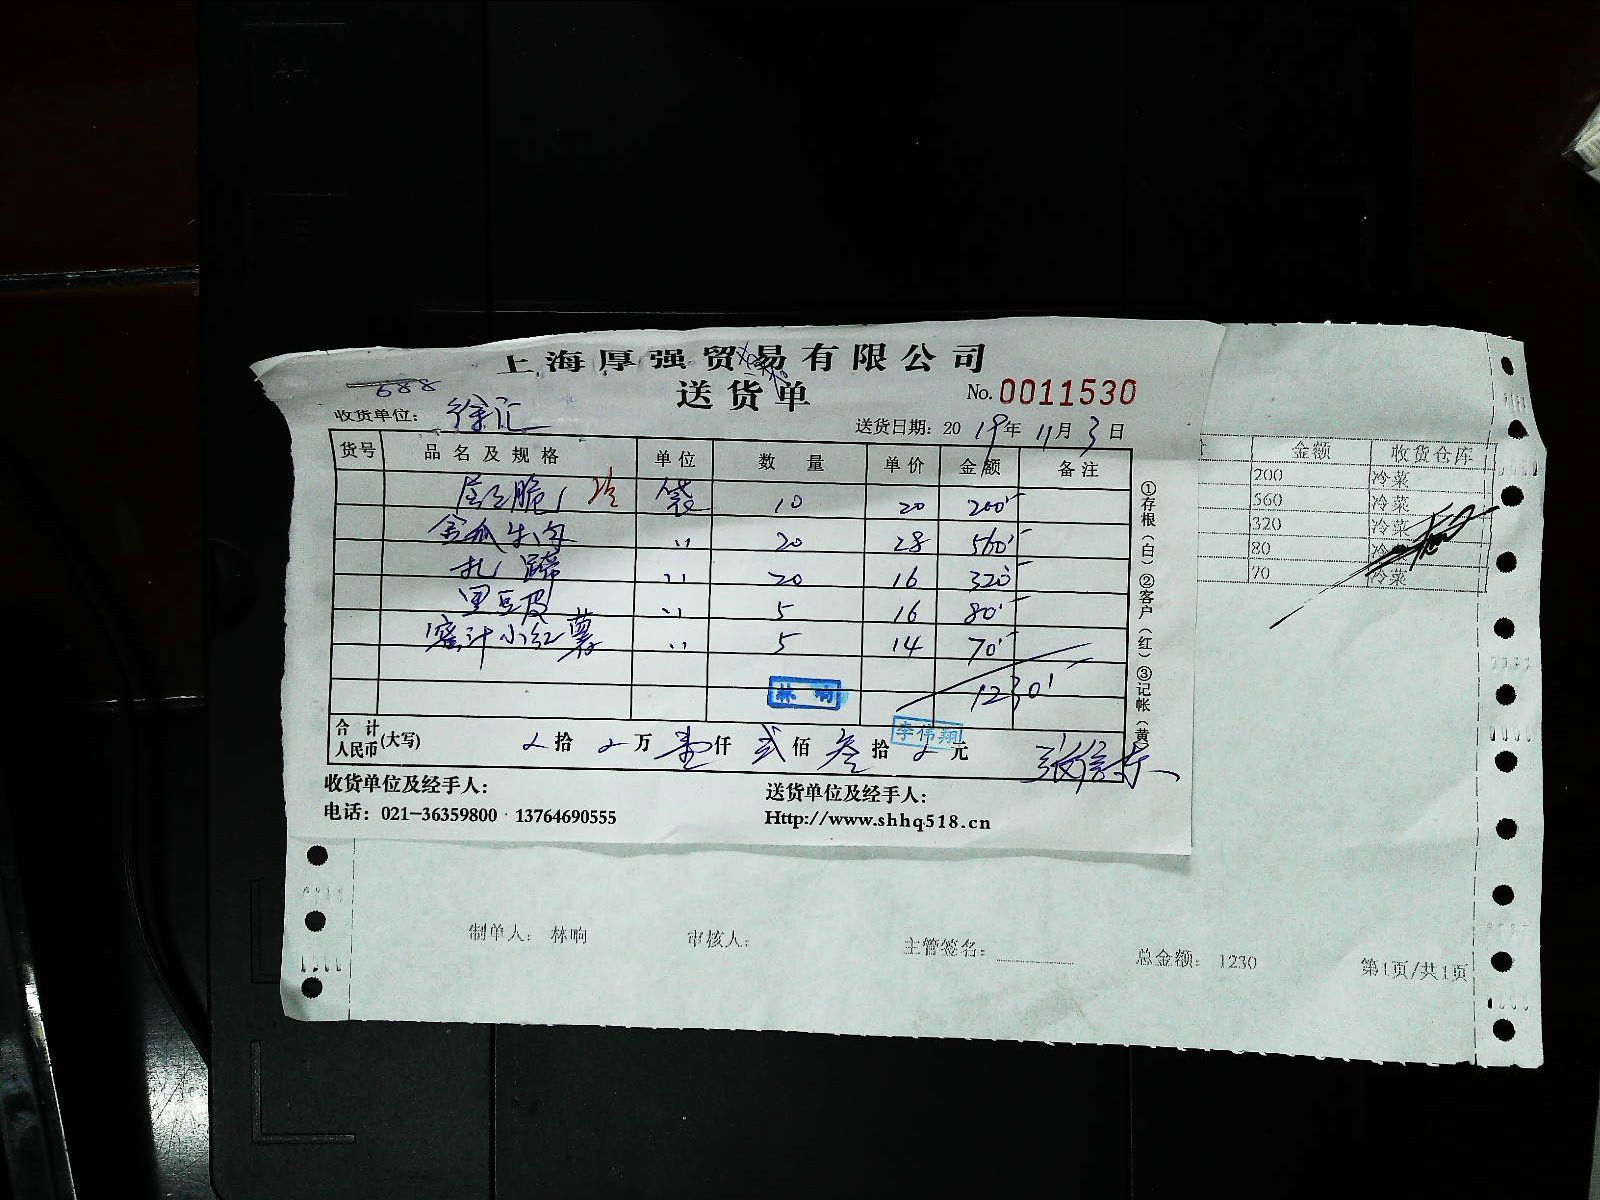 上海厚强贸易有限公司
送货单
No. 0011530
688
收货单位: 徐汇
送货日期: 2019年11月3日
货号 品名及规格 单位 数量 单价 金额 备注
脆 袋 10 20 200
金瓜牛肉 〃 20 28 560
扎蹄 〃 20 16 320
黑豆皮 〃 5 16 80
蜜汁小红薯 〃 5 14 70
林响
1230
李伟翔
合计人民币(大写) 拾 万 壹仟 贰佰 叁拾 元
收货单位及经手人:
送货单位及经手人:
电话: 021-36359800 13764690555
Http://www.shhq518.cn
①存根(白)②客户(红)③记帐(黄
金额 收货仓库
200 冷菜
560 冷菜
320 冷菜
80
70 冷菜
制单人: 林响 审核人: 主管签名: 总金额: 1230 第1页/共1页